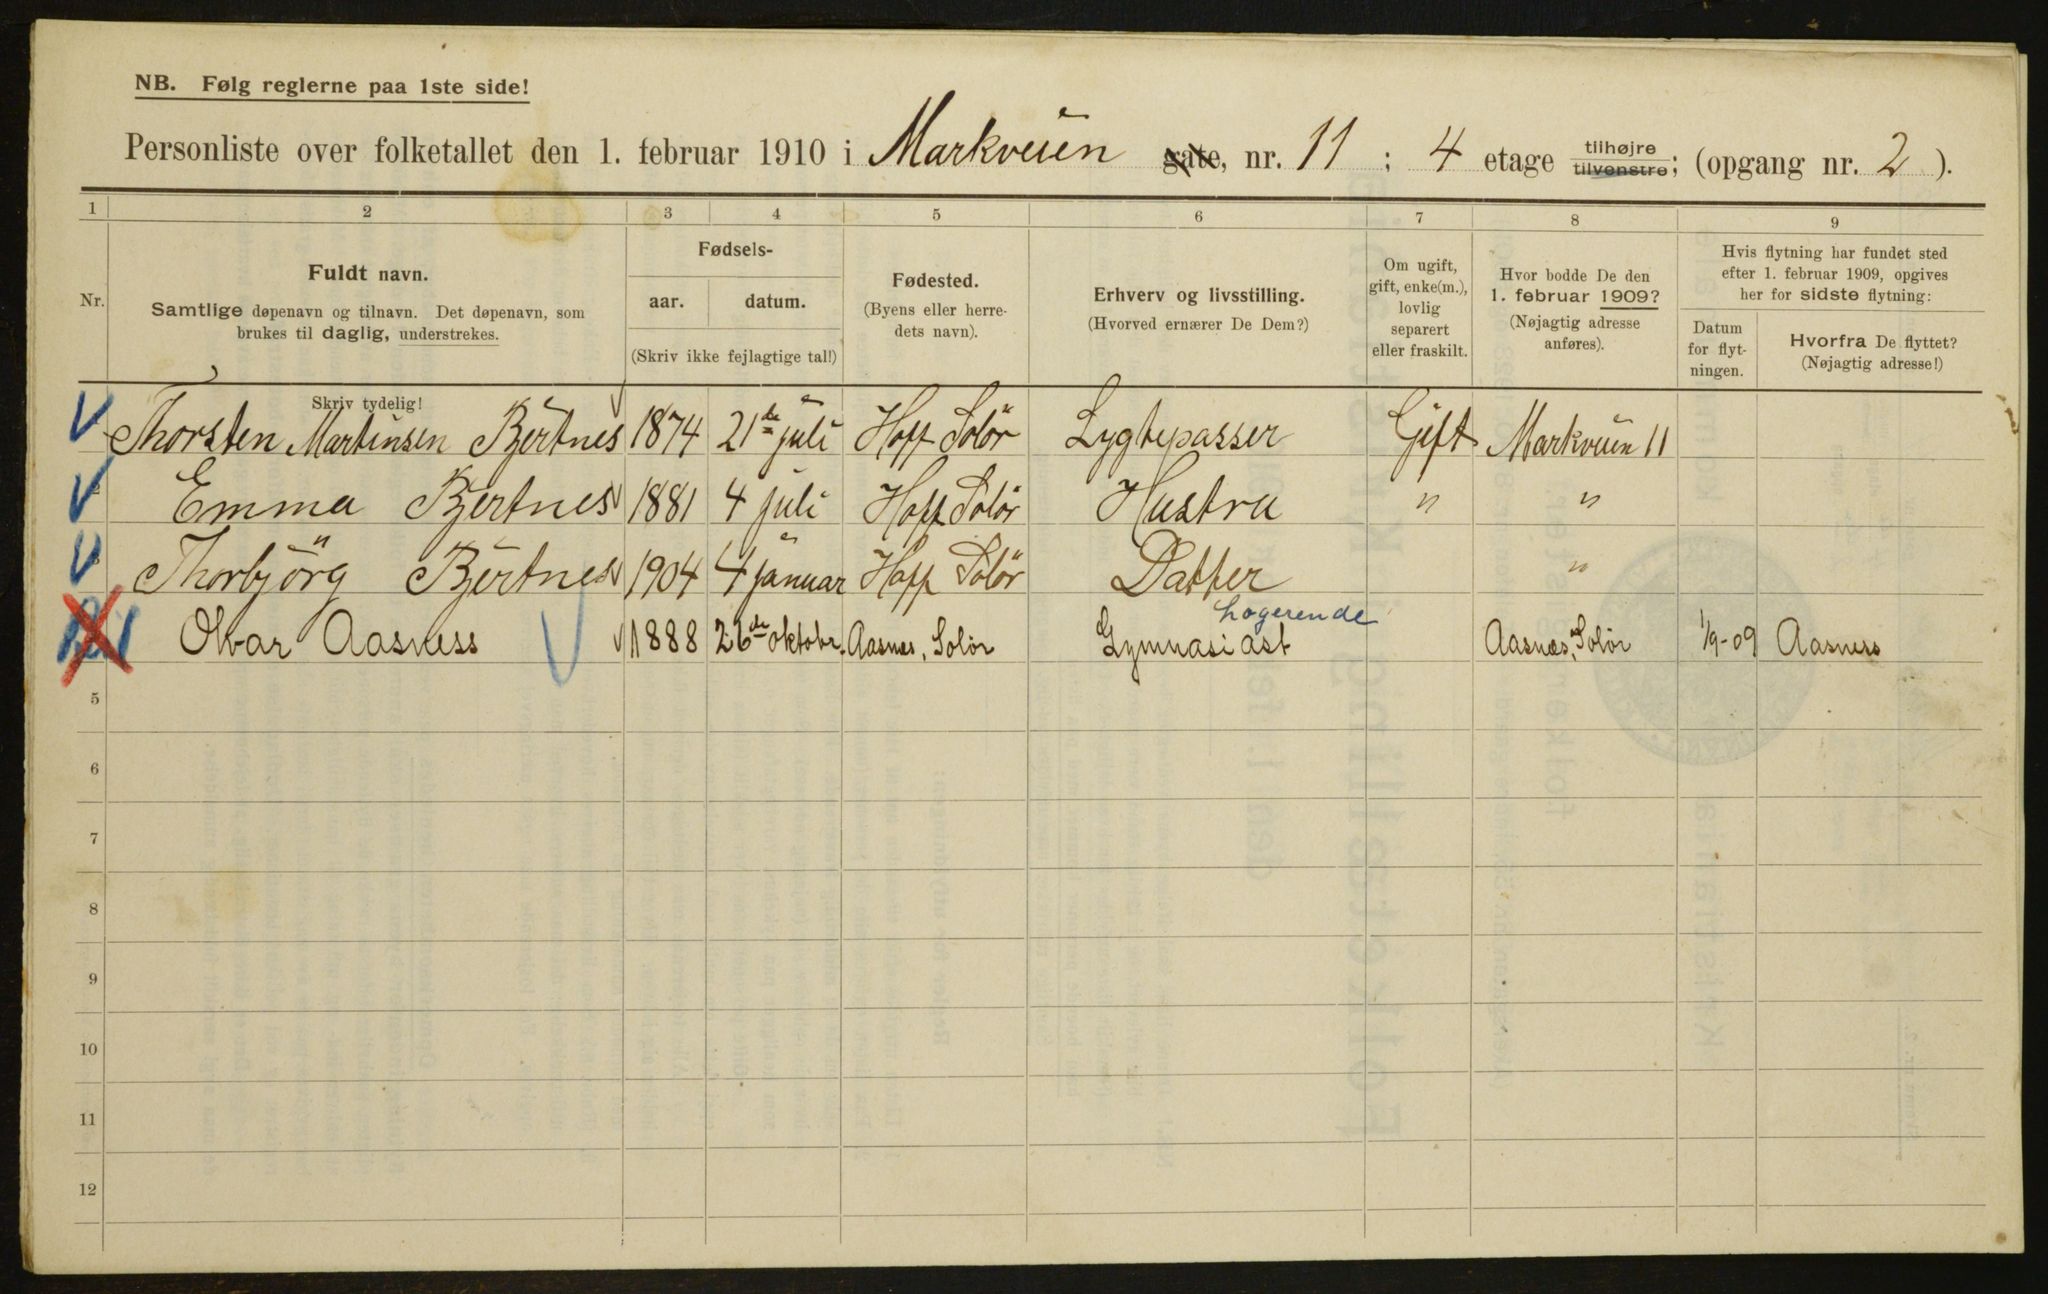 NB. Følg reglerne paa 1ste side!
Personliste over folketallet den 1. februar 1910 i Markveien gate, nr. 11 ; 4 etage tilhøjre tilvenstre; (opgang nr. 2 ).
1 2 3 4 5 6 7 8 9
Nr.
Fuldt navn.
Samtlige døpenavn og tilnavn. Det døpenavn, som
brukes til daglig, understrekes.
Skriv tydelig!
Fødsels-
aar. datum.
(Skriv ikke fejlagtige tal!)
Fødested.
(Byens eller herre-
dets navn).
Erhverv og livsstilling.
(Hvorved ernærer De Dem?)
Om ugift,
gift, enke(m.),
lovlig
separert
eller fraskilt.
Hvor bodde De den
1. februar 1909?
(Nøjagtig adresse
anføres).
Hvis flytning har fundet sted
efter 1. februar 1909, opgives
her for sidste flytning:
Datum
for flyt-
ningen.
Hvorfra De flyttet?
(Nøjagtig adresse!)
Thorsten Martinsen Bjertnes 1874 21de juli Hoff Solör Lygtepasser Gift Markveien 11
Emma Bjertnes 1881 4 juli Hoff Solör Hustru " "
Thorbjörg Bjertnes 1904 4 januar Hoff Solör Datter "
logerende
Olvar Aasness 1888 26de oktobr. Aasnes, Solør Gymnasiast Aasnæs, Solør 1/9-09 Aasness
5
6
7
8
9
10
11
12